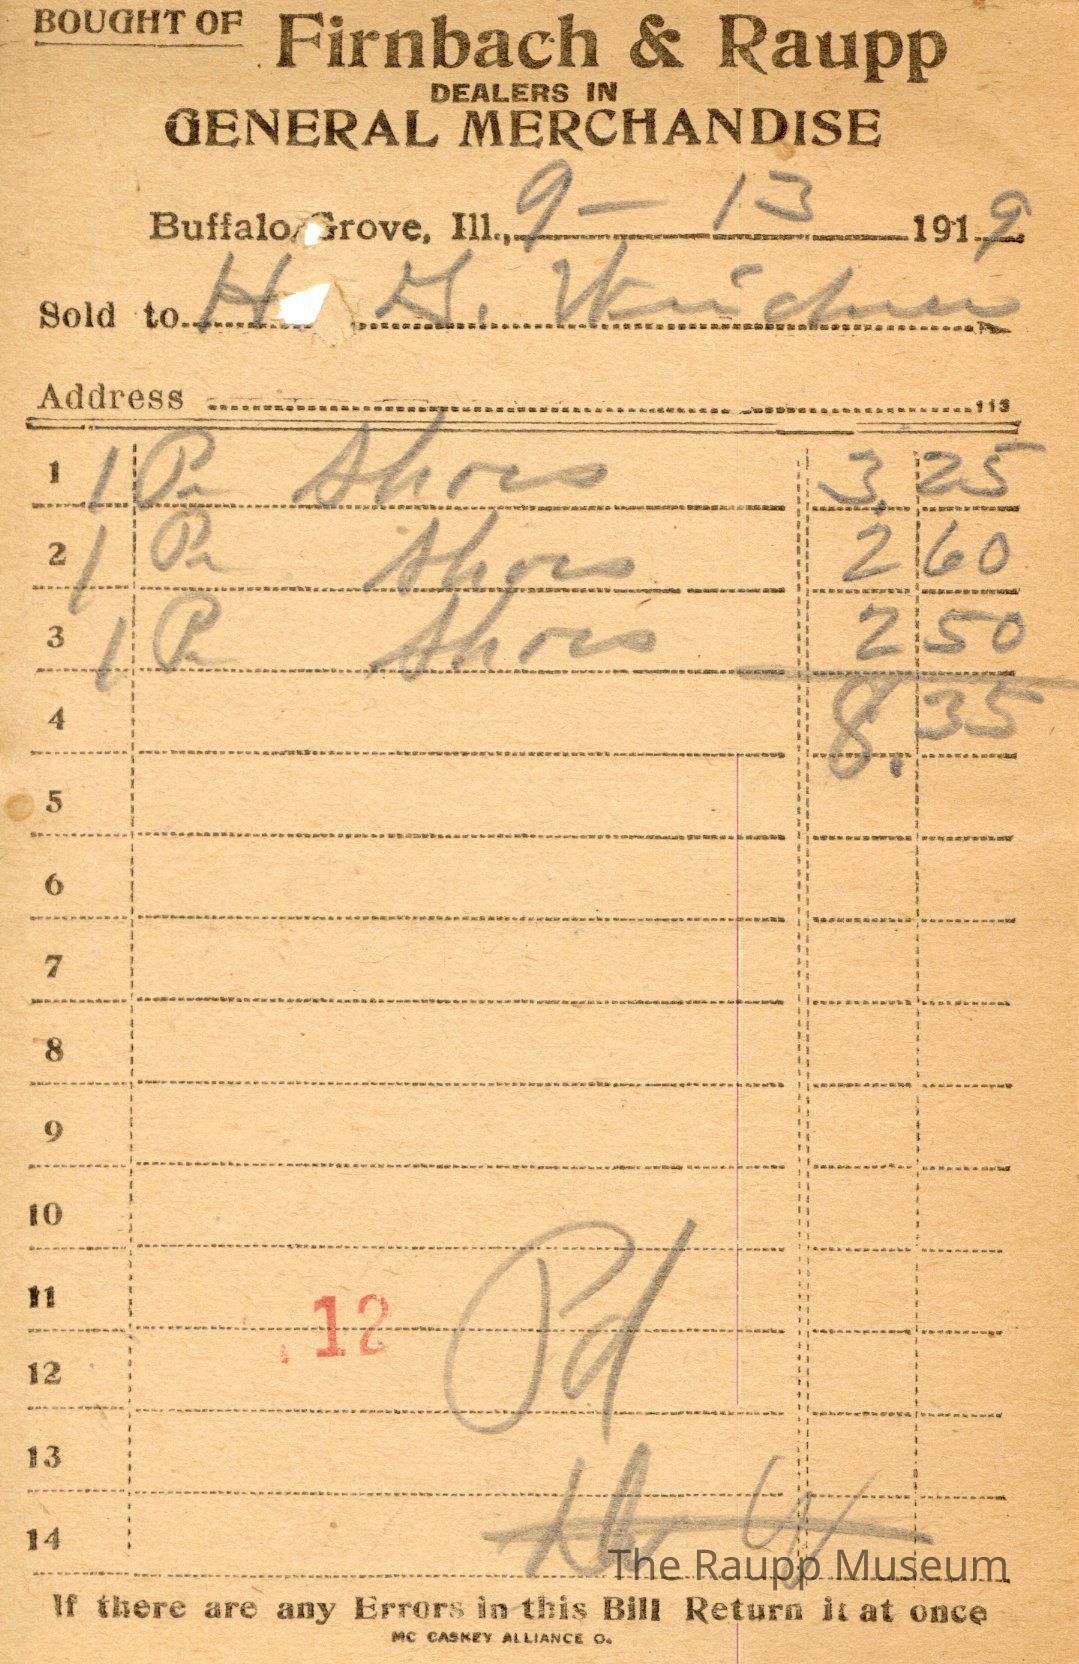 BOUGHT OF Firnbach & Raupp
DEALERS IN
GENERAL MERCHANDISE
Buffalo Grove, Ill., 9 - 13 1919
Sold to H. G.
Address 113
1 1 Pr Shoes 3.25
2 1 Pr Shoes 2 60
3 1 Pr Shoes 2 50
4 8.35
5
6
7
8
9
10
11
12
12
Pd
13
14
The Raupp Museum
If there are any Errors in this Bill Return it at once
MC CASKEY ALLIANCE O.